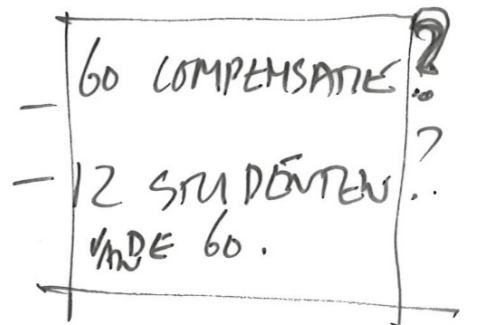 60 COMPENSATIE ?
- 12 STUDENTEN ?
VAN DE 60.